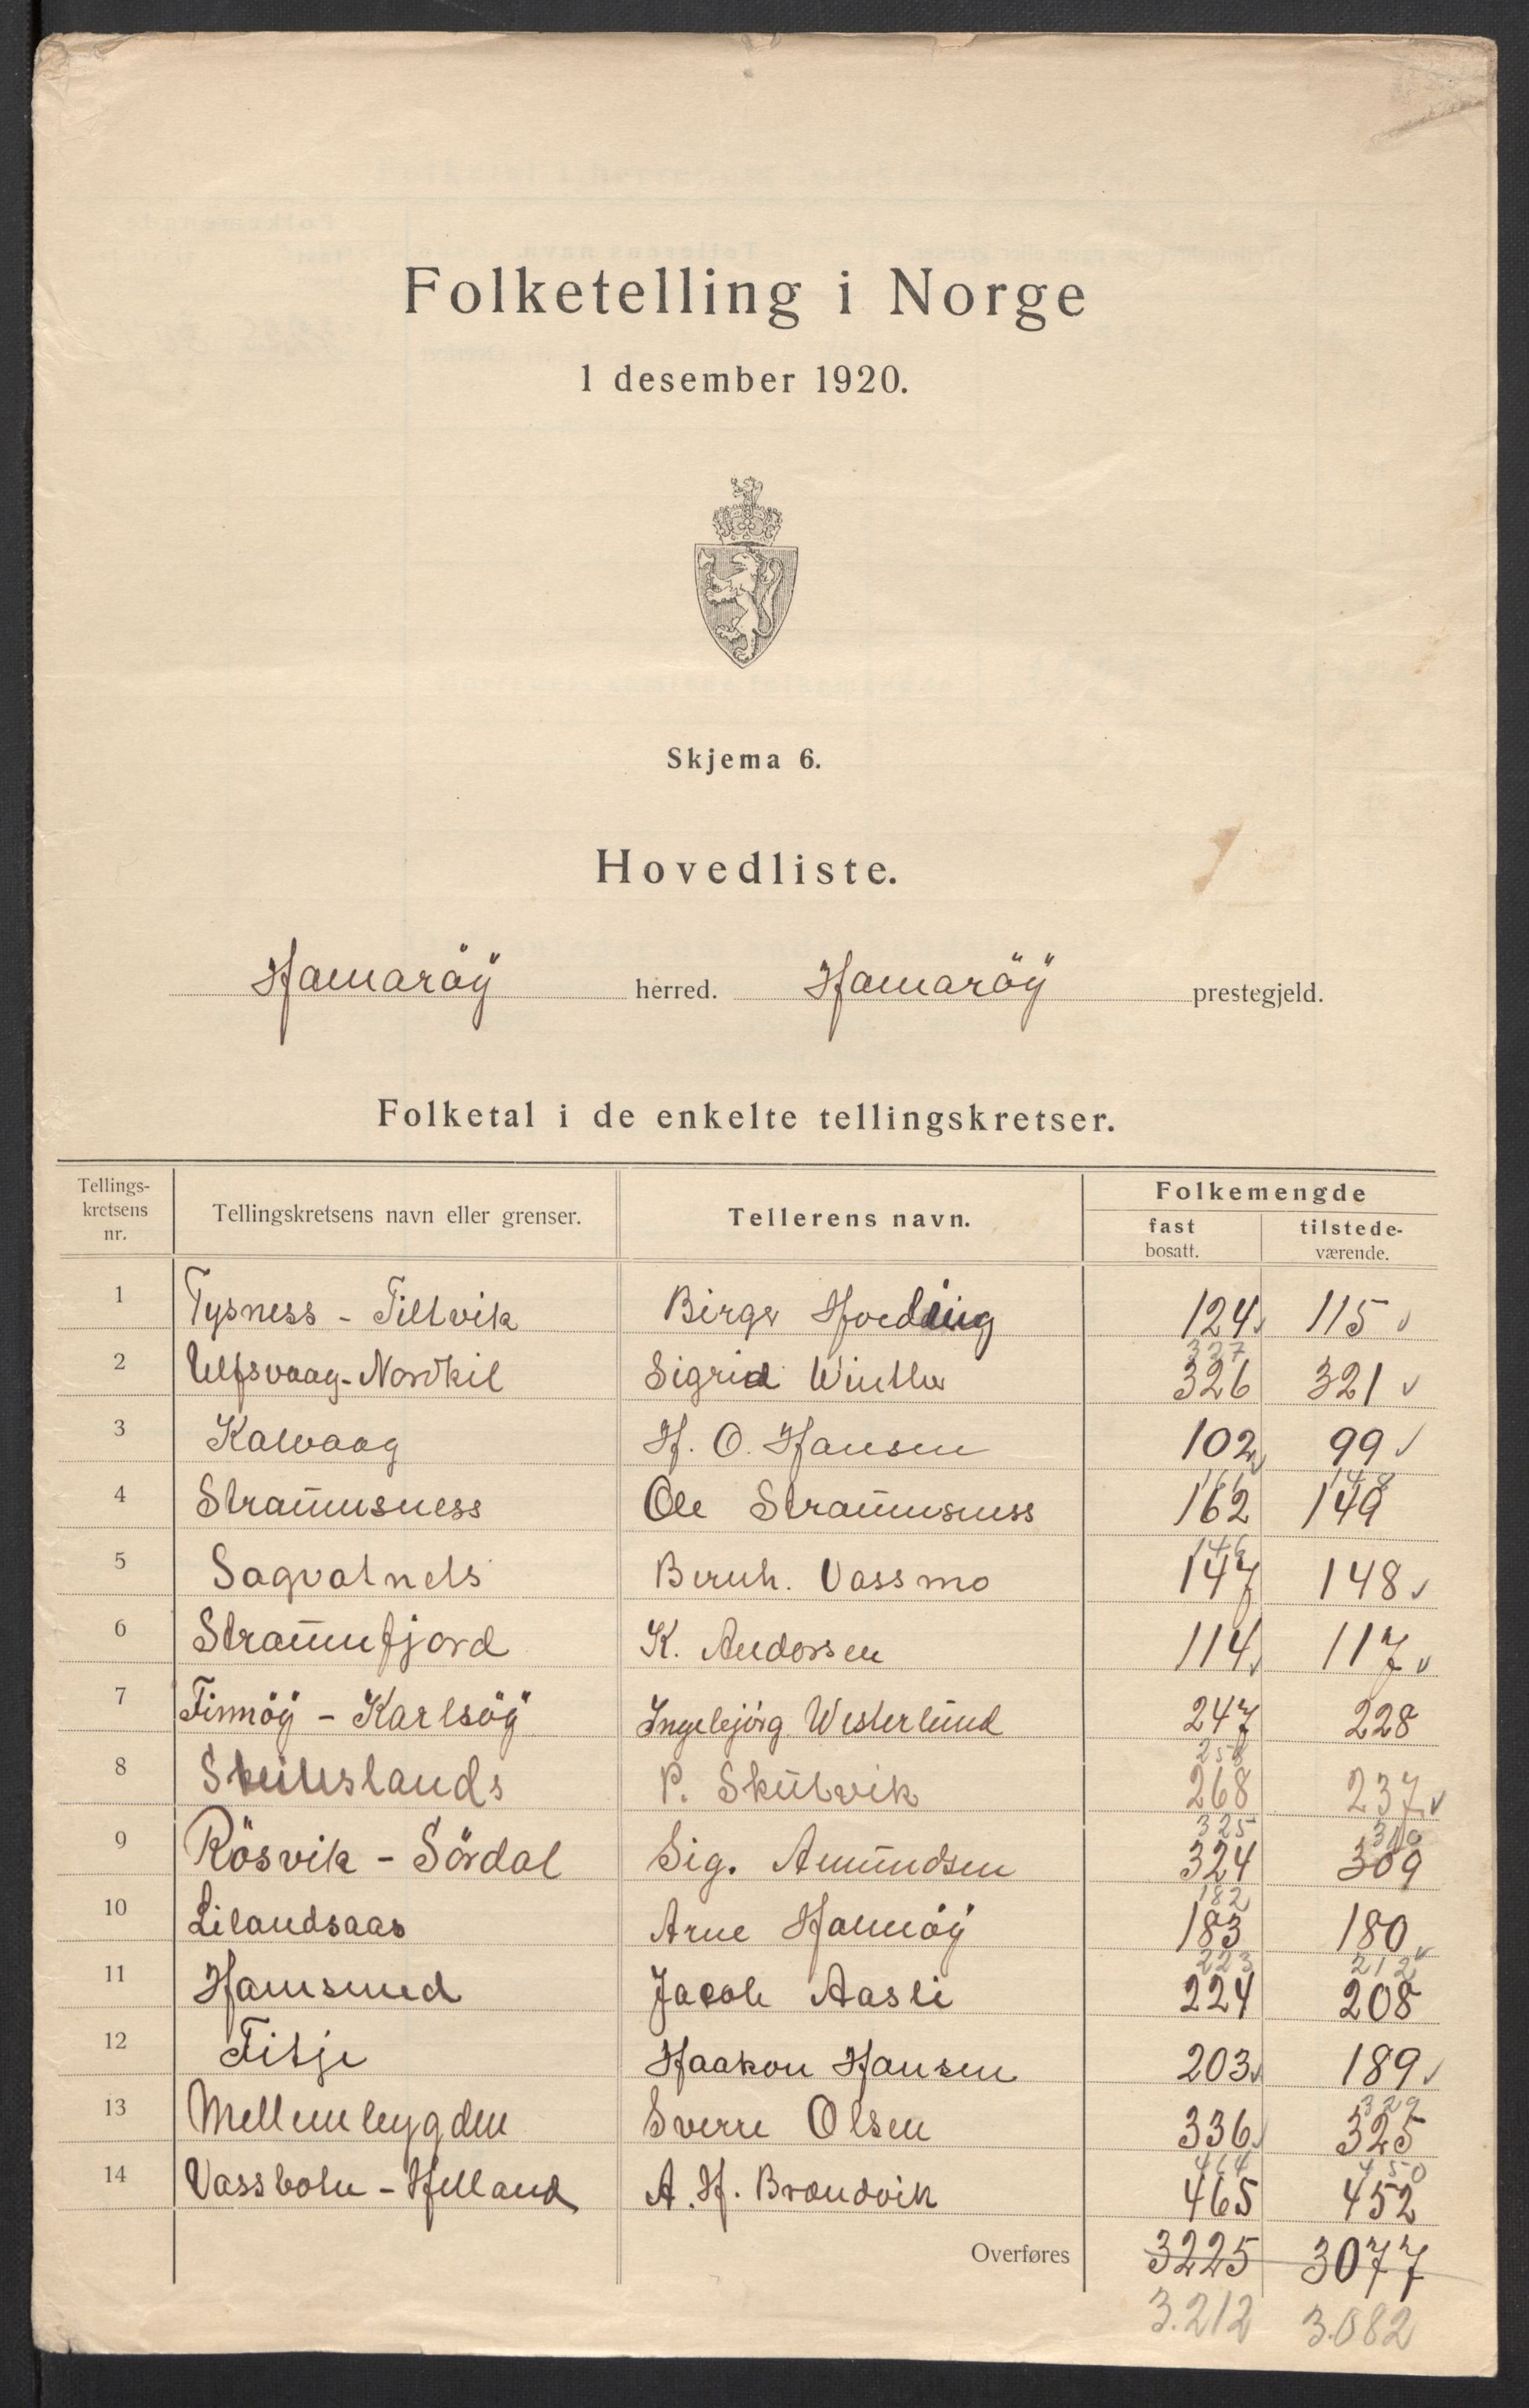 Folketelling i Norge
1 desember 1920.
Skjema 6.
Hovedliste.
Hamaröy herred. Hamaröy prestegjeld.
Folketal i de enkelte tellingskretser.
Tellings-kretsens nr. Tellingskretsens navn eller grenser. Tellerens navn. Folkemengde
fast bosatt. tilstede-værende.
1 Tysness - Tiltvik Birger Hjording 124 115
327
2 Ulfsvaag - Nordkil Sigrid Winther 326 321
3 Kalvaag H. O. Hansen 102 99
161 148
4 Straumsness Ole Straumsness 162 149
146
5 Sagvatnets Bernh. Vassmo 147 148
6 Straumfjord K. Andersen 114 117
7 Finnöy - Karlsöy Ingebjörg Westerlund 247 228
258
8 Skutslands P. Skutvik 268 237
325 310
9 Rösvik - Sördal Sig. Amundsen 324 309
182
10 Lilandsaas Arne Hamröy 183 180
223 212
11 Hamsund Jacob Aasli 224 208
12 Fitje Haakon Hansen 203 189
329
13 Mellembygden Sverre Olsen 336 325
464 450
14 Vassbotn - Helland A. H. Brandvik 465 452
Overføres 3225 3077
3.212 3.082